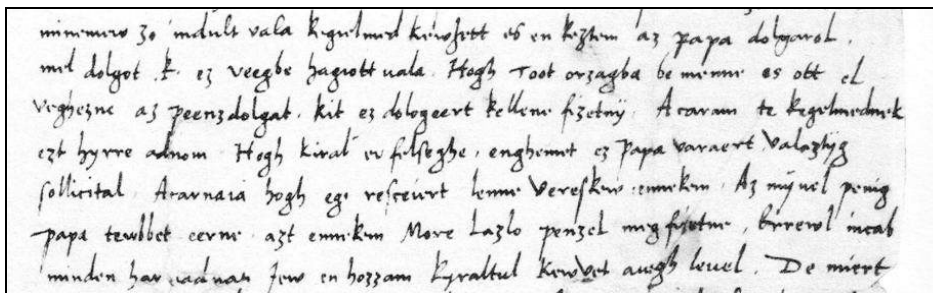 minemew zo indult vala kegielmed kewzett es en keztem az papa dolgarol.
mel dolgot .k. ez veegbe hagiott uala. Hogh Toot orzagba be menne es ott el
veghezne az peenzdolgat. kit ez dologeert kellene fizetnÿ. Acaram te kegelmednek
ezt hyrre adnom. Hogh Kiral ew felseghe. enghemet ez papa varaert valaztÿg
sollicital. Acarnaia hogh egi resceiert lenne Vereskew ennekem. Az mÿuel penig
papa tewbbet eerne. azt ennekem More Lazlo penzel meg fizetne, Errewl incab
minden har uadnap Jew en hozzam kyraltul kewvet auagh leuel. De miert